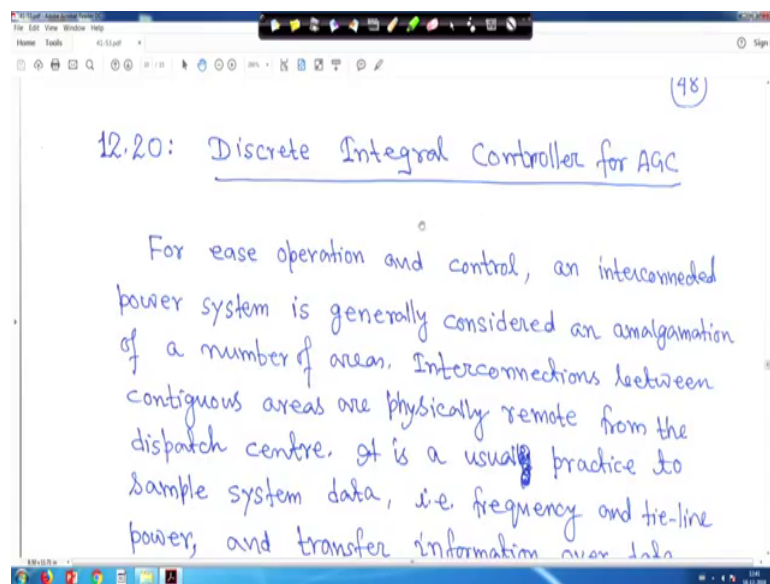 41-53.pdf - Adobe Acrobat Reader DC
File Edit View Window Help
Home Tools 41-53.pdf × Sign
(48)
12.20: Discrete Integral Controller for AGC
For ease operation and control, an interconnected
power system is generally considered an amalgamation
of a number of areas. Interconnections between
contiguous areas are physically remote from the
dispatch centre. It is a usual practice to
sample system data, i.e. frequency and tie-line
power, and transfer information over data